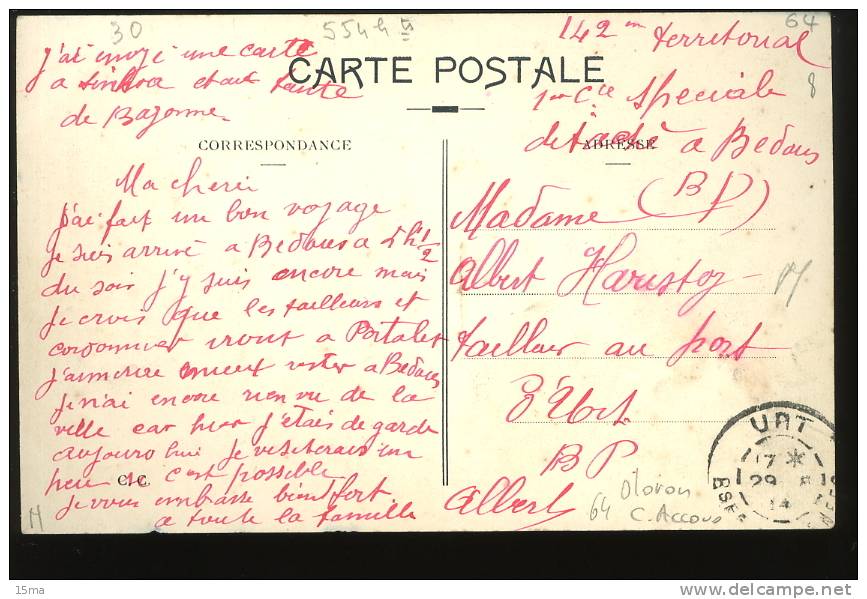 30
554h
64
8
j'ai envoyé une carte
a et une tante
de Bayonne
142 em territorial
1er Cie Speciale
detaché a Bedous
(BP)
CARTE POSTALE
CORRESPONDANCE
ADRESSE
Ma cheri
j'ai fait un bon voyage
je suis arrivé a Bedous a 5h 1/2
du soir j'y suis encore mais
je crois que les tailleurs et
cordonnier iront a Portalet
j'aimerai mieux rester a Bedous
je n'ai encore rien vu de la
ville car hier j'étais de garde
aujourd hui je visiterais un
peu si c'est possible
C. C.
je vous embrasse bien fort
a toute la famille
Madame
Albert Harustoy
tailleur au port
d'Urt
BP
Albert
M
M
64 Oloron
C. Accous
URT
17 *
29
14
BSES
15ma
www.delcampe.net